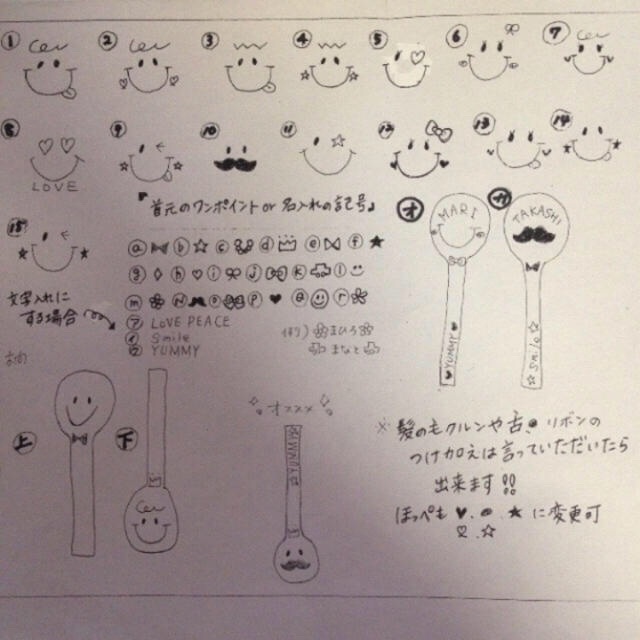 ① ② ③ ④ ⑤ ⑥ ⑦
⑧ ⑨ ⑩ ⑪ ⑫ ⑬ ⑭
LOVE
『首元のワンポイント or 名入れの記号』
⑮
ⓐ ⓑ ☆ ⓒ ⓓ ⓔ ⓕ ★
ⓖ ◊ ⓗ ♡ ⓘ ⓙ ⓚ ⓛ
ⓜ ⓝ ⓞ ⓟ ♥ ⓠ ⓡ
文字入れに
する場合
㋐ LOVE PEACE
㋑ Smile
㋒ YUMMY
例) まひろ
まなと
オ MARI
YUMMY ♥
カ TAKASHI
☆ Smile ☆
上
下
オススメ
※ 髪のもクルンや舌、リボンの
つけ加えは言っていただいたら
出来ます!!
ほっぺも ♥. ●. ★ に変更可
♡.☆